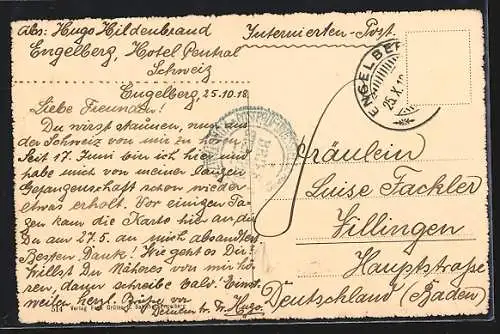 Abs: Hugo Hildenbrand
Engelberg, Hotel Central
Schweiz
Engelberg, 25.10.18.
Liebe Freundin!
Du wirst staunen, nun aus
der Schweiz von mir zu hören.
Seit 17. Juni bin ich hier und
habe mich von meiner langen
Gefangenschaft schon wieder
etwas erholt. Vor einigen Ta-
gen kam die Karte hier an die
Du am 27.5. an mich absandtest.
Besten Dank! Wie geht es Dir?
Willst Du Näheres von mir hö-
ren, dann schreibe bald! Einst-
weilen herzl. Grüße von
Deinem tr. Fr. Hugo.
514 Verlag
Internierten-Post.
ENGELBERG
25.X.18
Fräulein
Luise Fackler
Villingen
Hauptstrasse
Deutschland (Baden)